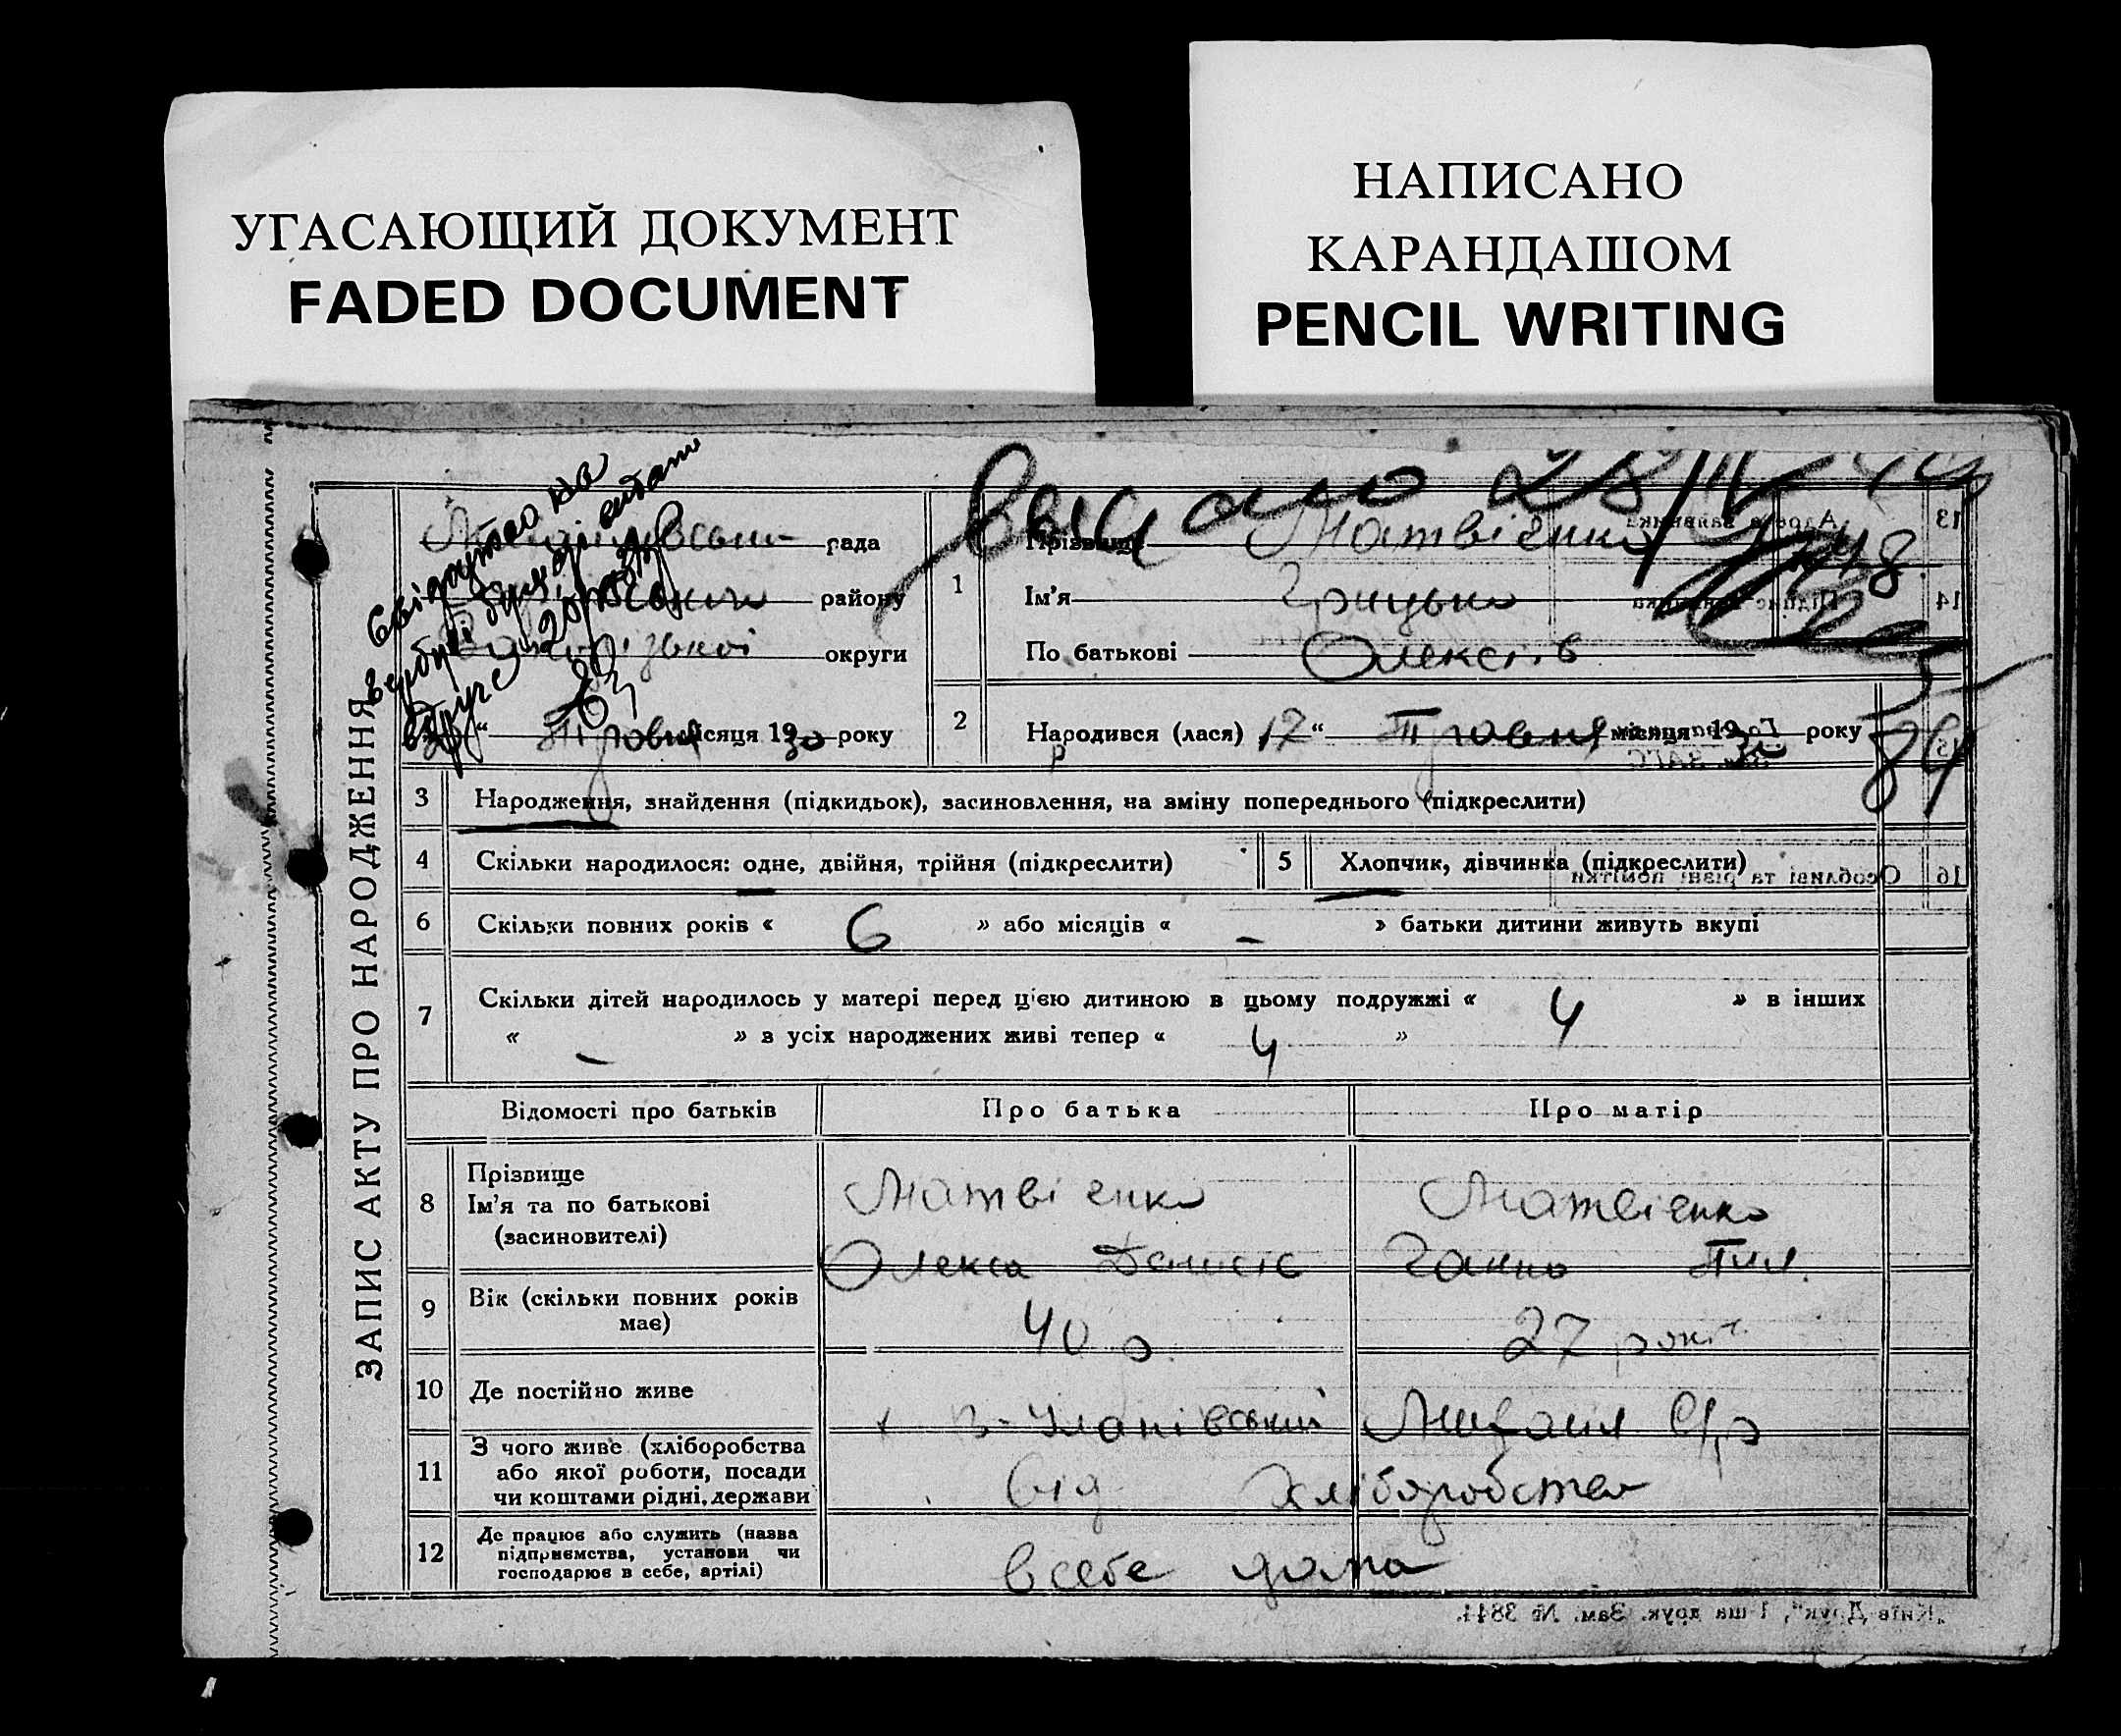 УГАСАЮЩИЙ ДОКУМЕНТ
FADED DOCUMENT
НАПИСАНО
КАРАНДАШОМ
PENCIL WRITING
ЗАПИС АКТУ ПРО НАРОДЖЕННЯ
рада
району
округи
" Травня місяця 1930 року
видано 28/III
1 Прізвище Матвієнко
Ім'я Грицько
По батькові Олексів
2 Народився (лася) 17 " Травня місяця 1930 року
84
3 Народження, знайдення (підкидьок), засиновлення, на зміну попереднього (підкреслити)
4 Скільки народилося: одне, двійня, трійня (підкреслити)
5 Хлопчик, дівчинка (підкреслити)
6 Скільки повних років « 6 » або місяців « – » батьки дитини живуть вкупі
7 Скільки дітей народилось у матері перед цією дитиною в цьому подружжі « 4 » в інших
« – » з усіх народжених живі тепер « 4 »
Відомості про батьків Про батька Про матір
8 Прізвище
Ім'я та по батькові
(засиновителі)
Матвієнко
Олекса
Матвієнко
Ганна Пил.
9 Вік (скільки повних років
має)
40 р
27 років
10 Де постійно живе
11 З чого живе (хліборобства
або якої роботи, посади
чи коштами рідні, держави
Від хліборобства
12 Де працює або служить (назва
підприємства, установи чи
господарює в себе, артілі)
в себе дома
13 Адреса заявника
14 Підпис заявника
16 Особливі та різні помітки
„Київ-Друк", 1-ша друк. Зам. № 3844.